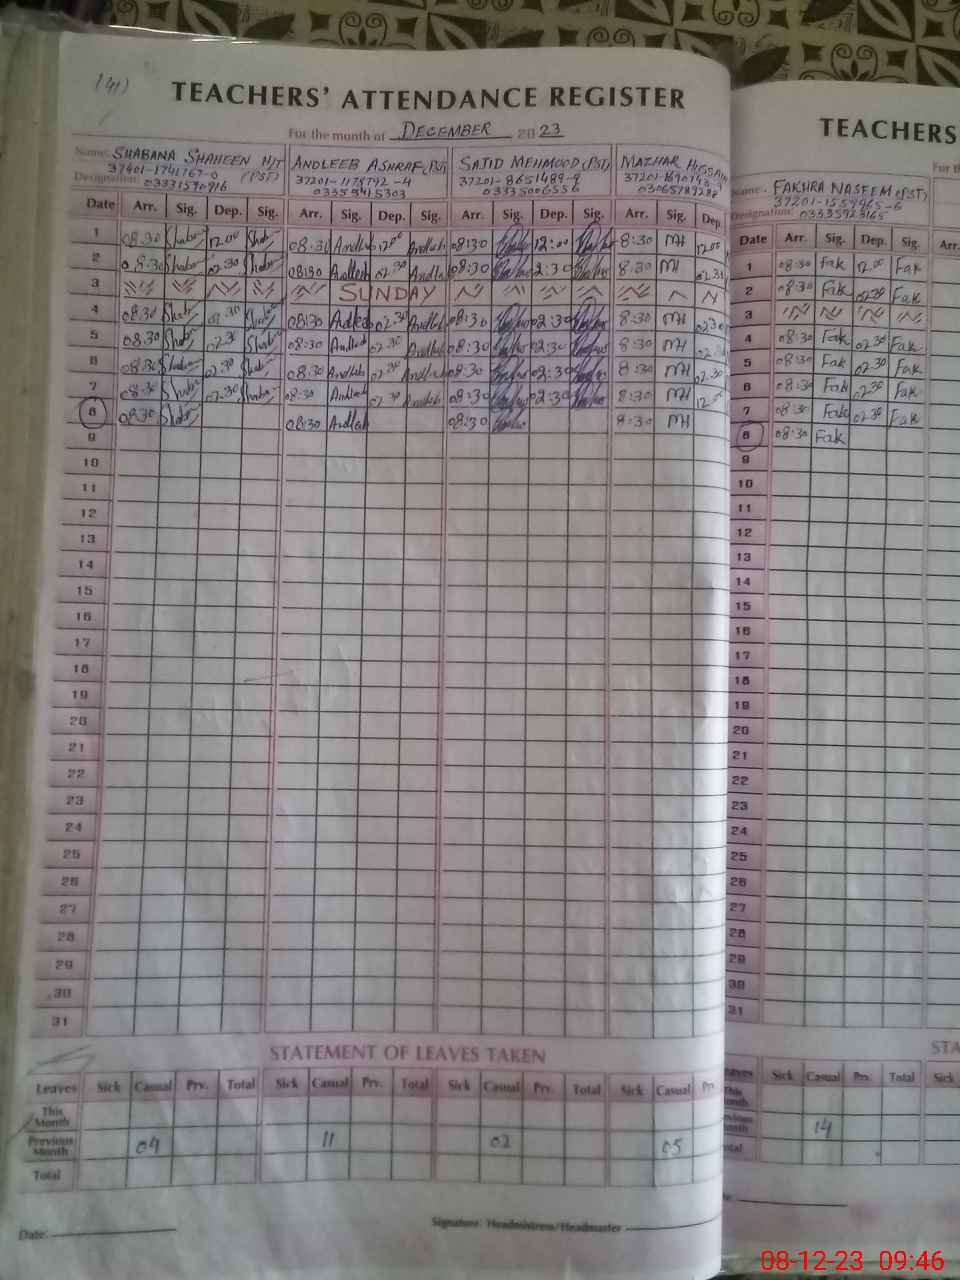 (41)
TEACHERS' ATTENDANCE REGISTER
For the month of DECEMBER 2023
Name: SHABANA SHAHEEN H/T (PST)
37401-1741767-0
Designation: 03331590916
ANDLEEB ASHRAF (PST)
37201-1178792-4
03355415303
SAJID MEHMOOD (PST)
37201-8651489-9
03335006556
MAZHAR HUSSAIN
Date Arr. Sig. Dep. Sig. Arr. Sig. Dep. Sig. Arr. Sig. Dep. Sig. Arr. Sig. Dep.
1 08:30 12:00 08:30 Andleeb 12:00 Andleeb 08:30 12:00 8:30 MH 12:00
2 08:30 02:30 08:30 Andleeb 02:30 08:30 2:30 8:30 MH 02:30
3 SUNDAY
4 08:30 02:30 08:30 02:30 08:30 02:30 8:30 MH 02:30
5 08:30 02:30 08:30 02:30 08:30 02:30 8:30 MH 02:30
6 08:30 02:30 08:30 02:30 08:30 02:30 8:30 MH 02:30
7 08:30 02:30 08:30 02:30 08:30 02:30 8:30 MH 12:00
8 08:30 08:30 08:30 8:30 MH
9
10
11
12
13
14
15
16
17
18
19
20
21
22
23
24
25
26
27
28
29
30
31
STATEMENT OF LEAVES TAKEN
Leaves Sick Casual Prv. Total Sick Casual Prv. Total Sick Casual Prv. Total Sick Casual Prv.
This Month
Previous Month 04 11 02 05
Total
Date: Signature: Headmistress/Headmaster
TEACHERS
For th
Name: FAKHRA NASEEM (PST)
37201-1559965-6
Designation: 03335923165
Date Arr. Sig. Dep. Sig. Arr.
1 08:30 Fak 12:00 Fak
2 08:30 Fak 02:30 Fak
3
4 08:30 Fak 02:30 Fak
5 08:30 Fak 02:30 Fak
6 08:30 Fak 02:30 Fak
7 08:30 Fak 02:30 Fak
8 08:30 Fak
9
10
11
12
13
14
15
16
17
18
19
20
21
22
23
24
25
26
27
28
29
30
31
STA
eaves Sick Casual Prv. Total Sick
This Month
vious onth 14
otal
08-12-23 09:46